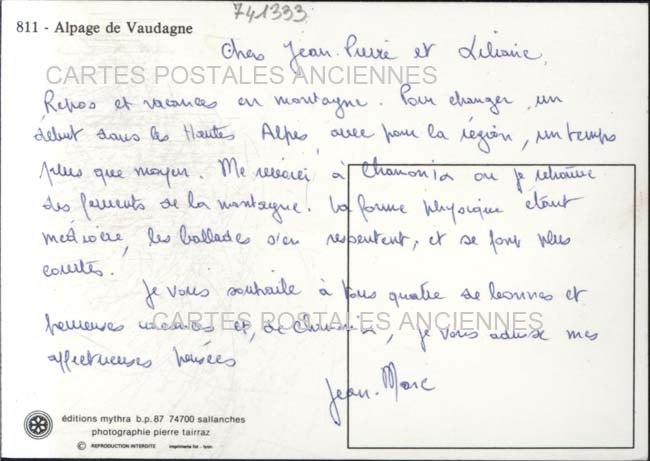 741333
811 - Alpage de Vaudagne
Chers Jean-Pierre et Liliane,
CARTES POSTALES ANCIENNES
Repos et vacances en montagne. Pour changer, un
début dans les Hautes Alpes, avec pour la région, un temps
plus que moyen. Me revoici à Chamonix où je retrouve
des fervents de la montagne. La forme physique étant
médiocre, les ballades s'en ressentent, et se font plus
courtes.
Je vous souhaite à tous quatre de bonnes et
heureuses vacances et, de Chamonix, je vous adresse mes
CARTES POSTALES ANCIENNES
affectueuses pensées
Jean-Marc
éditions mythra b.p. 87 74700 sallanches
photographie pierre tairraz
© REPRODUCTION INTERDITE imprimerie fot - lyon